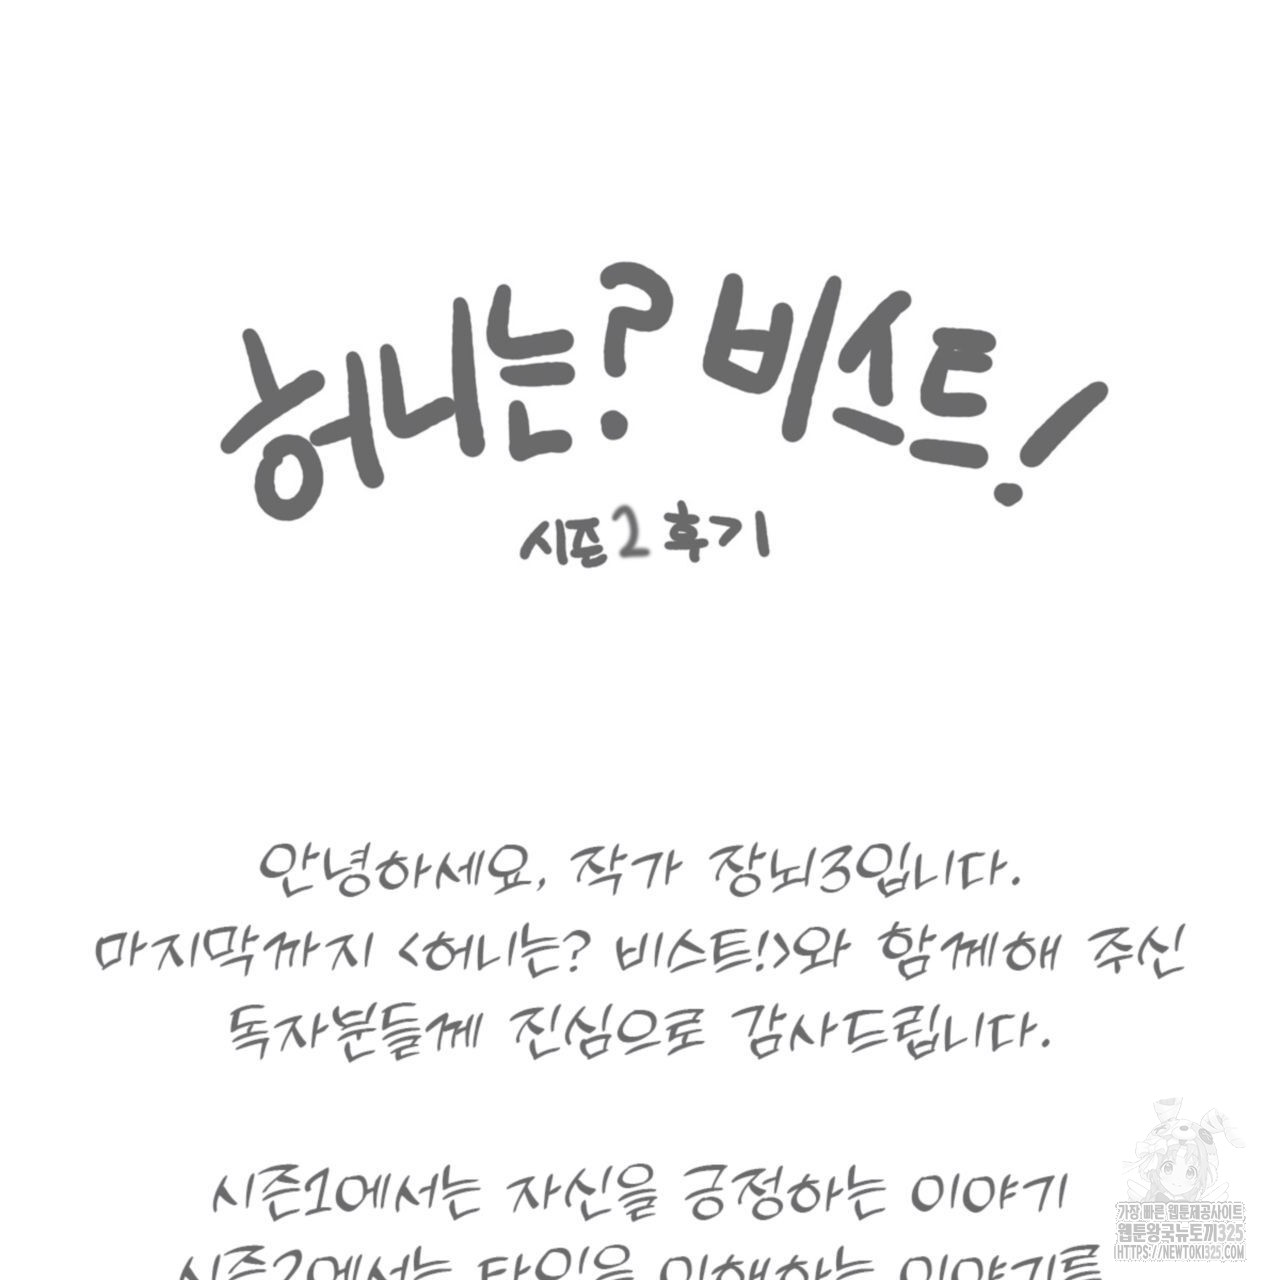 허니는? 비스트!
시즌2 후기
안녕하세요, 작가 장뇌3입니다.
마지막까지 <허니는? 비스트!>와 함께해 주신
독자분들께 진심으로 감사드립니다.
시즌1에서는 자신을 긍정하는 이야기
시즌2에서는 타인을 이해하는 이야기를
가장 빠른 웹툰제공사이트
웹툰왕국뉴토끼325
HTTPS://NEWTOKI325.COM